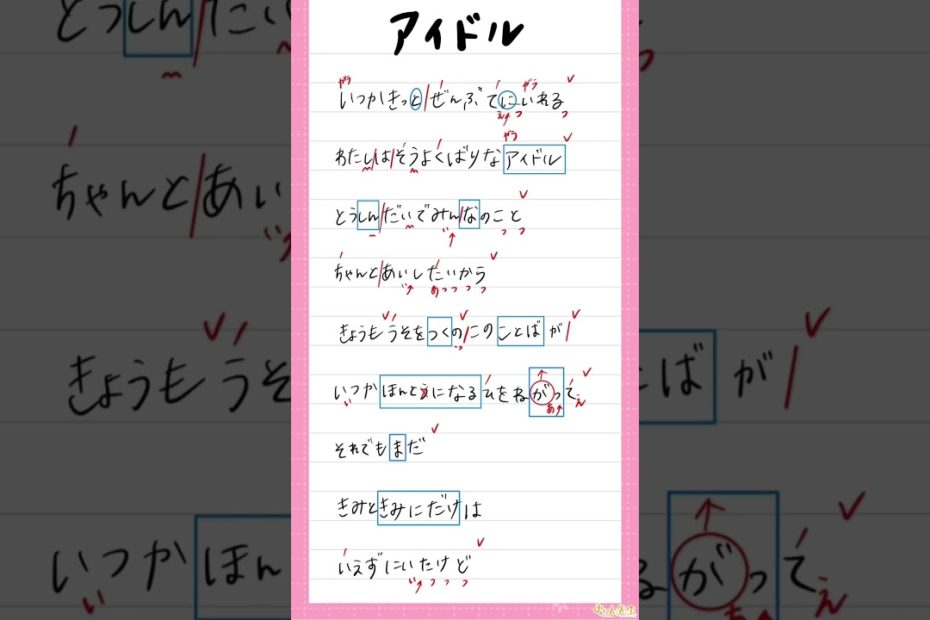 アイドル
いつかきっと/ぜんぶてにいれる
わたしは/そうよくばりなアイドル
とうしん/だいでみんなのこと
ちゃんと/あいしたいから
きょうもうそをつくの/このことばが/
いつかほんとうになるひをねがって
それでもまだ
きみときみにだけは
いえずにいたけど